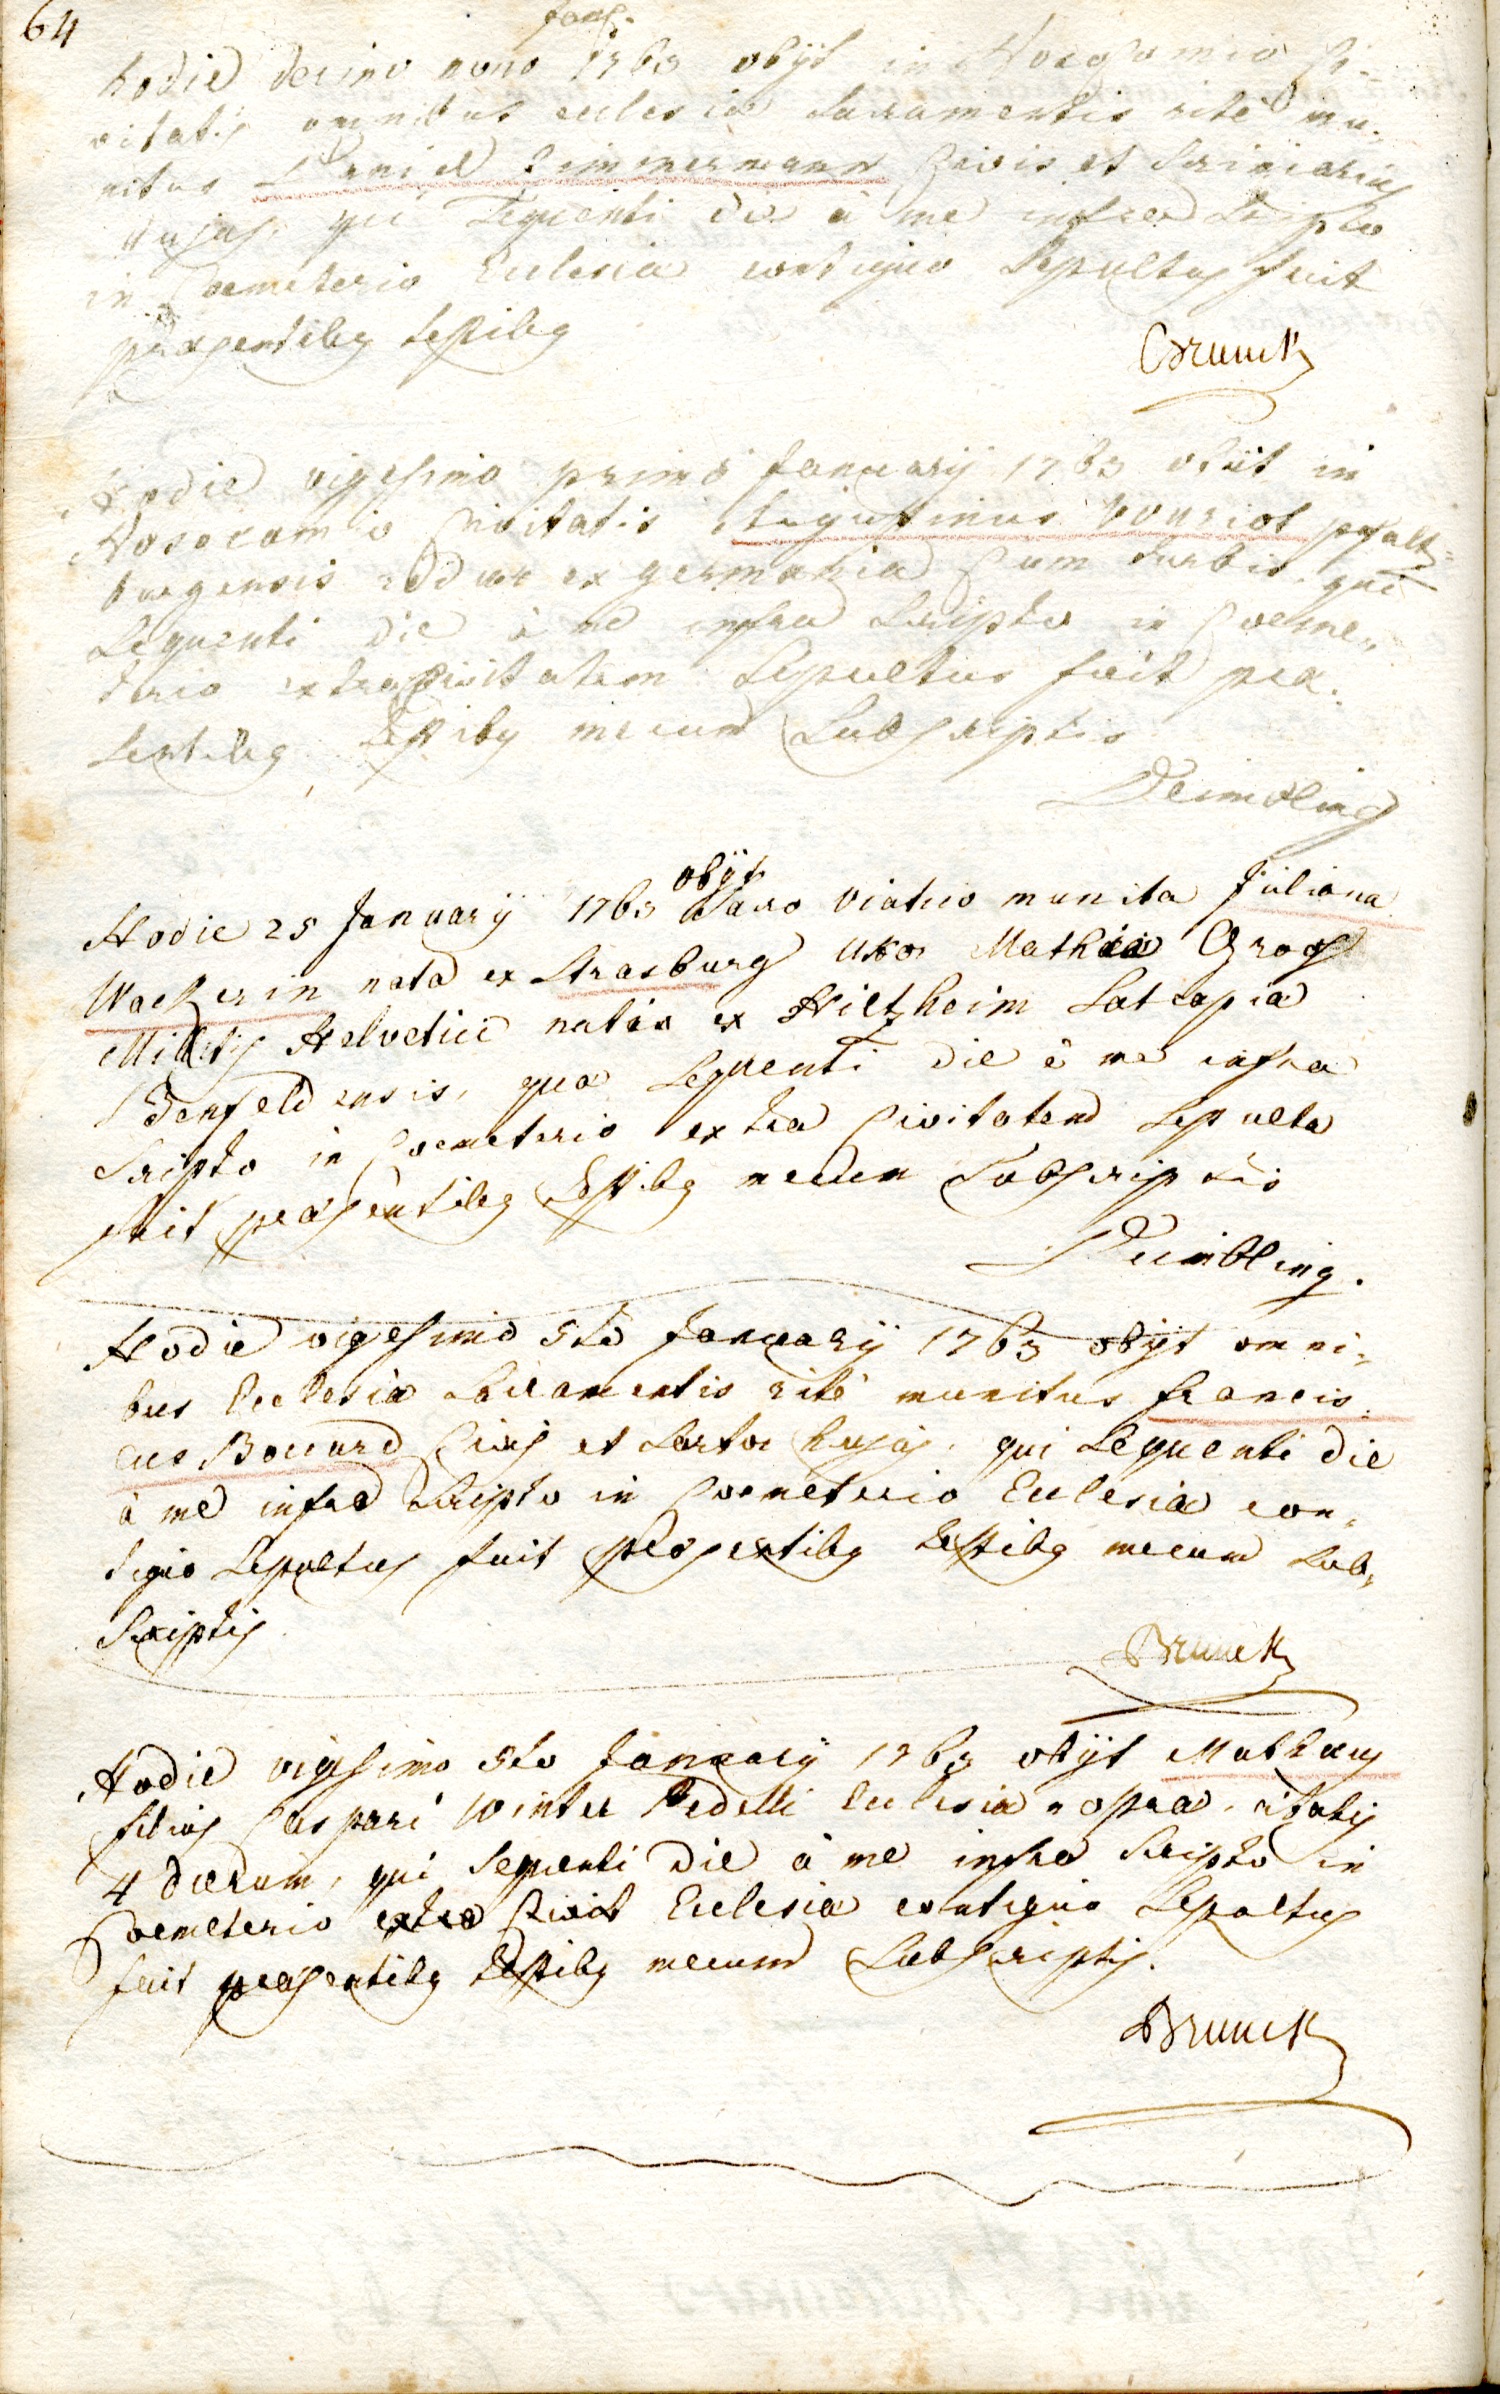 64
Janʳ.
hodie decimo nono 1763 obijt in Nosocomio Ci-
vitatis omnibus ecclesiæ Sacramentis rite mu-
nitus Daniel Zimmermann Civis et Scriniarius
hujas, qui Sequenti die à me infra Scripto
in Coemeterio Ecclesiæ contiguo Sepultus fuit
præsentibus testibus
Brunck
Hodie vigesimo primo Januarij 1763 obiit in
Nosocomio Civitatis Augustinus Vouriot pfaltz-
burgensis redux ex germania Cum turbis. qui
Sequenti die à me infra Scripto in Coeme-
terio extra Civitatem Sepultus fuit præ-
sentibus testibus mecum Subscriptis
Deimbling
Hodie 25 Januarij 1763 obijt Sacro viatico munita Juliana
Wackerin nata ex Strasburg uxor Mathiæ Gros
Militis Helvetici natis ex Hiltzheim Satrapiæ
Denfeldensis, quæ Sequenti die à me infra
Scripto in Coemeterio extra Civitatem Sepulta
fuit præsentibus testibus mecum Subscriptis
Deimbling.
Hodie vigesimo 5to Januarij 1763 obijt omni-
bus Ecclesiæ Sacramentis rite munitus francis-
cus Bouurd Civis et Sartor hujas, qui Sequenti die
à me infra Scripto in Coemeterio Ecclesiæ con-
tiguo Sepultus fuit præsentibus testibus mecum Sub-
Scriptis
Brunck
Hodie vigesimo 5to Januarij 1763 obijt Mathæus
filius Caspari Winter Pedelli Ecclesiæ nostræ. ætatis
4 dierum, qui Sequenti die à me infra Scripto in
Coemeterio extra Civit Ecclesiæ contiguo Sepultus
fuit præsentibus testibus mecum Subscriptis.
Brunck